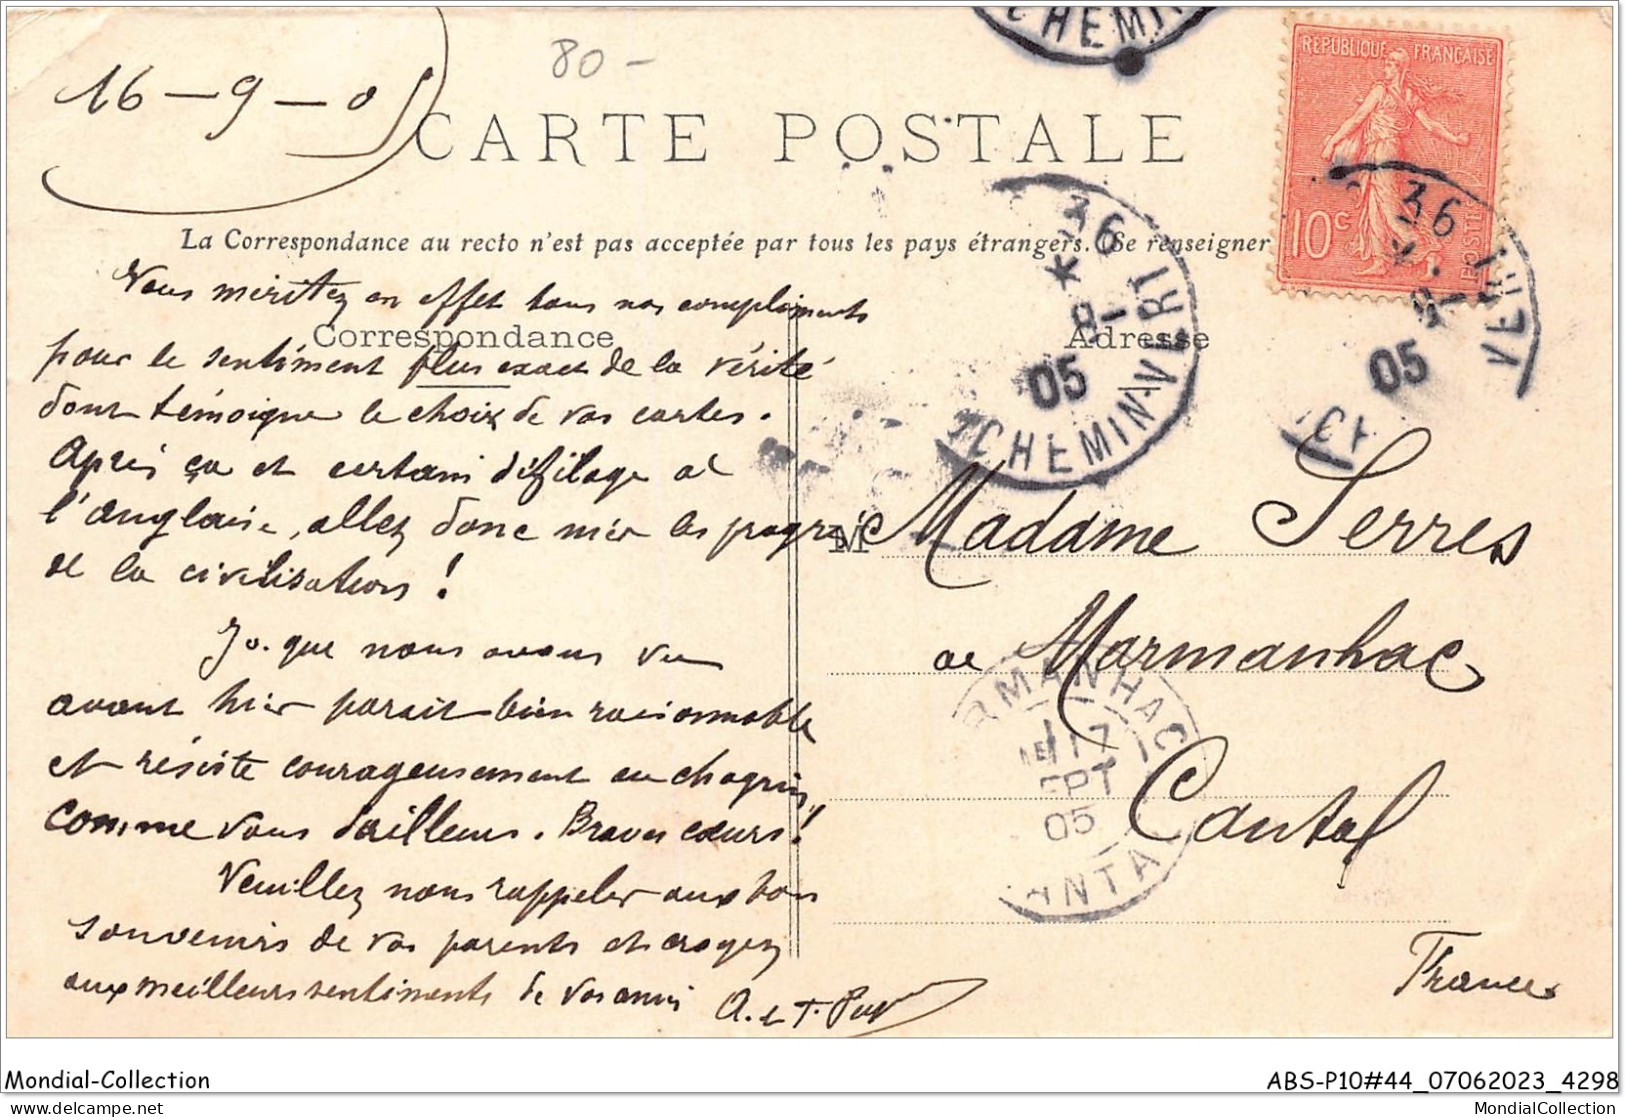 16 - 9 - 05
80 -
CHEMIN
CARTE POSTALE
RÉPUBLIQUE FRANÇAISE
10c
POSTES
La Correspondance au recto n'est pas acceptée par tous les pays étrangers. (Se renseigner
36
* 
05
CHEMIN-VERT
36
*
05
VERT
Vous méritez en effet tous nos compliments
Correspondance
Adresse
pour le sentiment plus exact de la vérité
dont témoigne le choix de vos cartes.
Après ça et certain défilage de
l'anglaise, allez donc nier les progrès
de la civilisation !
M Madame Serres
Jo. que nous avons vu
avant hier parait bien raisonnable
et résiste courageusement au chagrin,
comme vous d'ailleurs. Braves cœurs !
de Marmanhac
Cantal
RMANHAC
17
SEPT
05
CANTA
Veuillez nous rappeler aux bons
souvenirs de vos parents et croyez
aux meilleurs sentiments de vos amis
A. et T.
France
Mondial-Collection
ABS-P10#44_07062023_4298
mondial-collection
MondialCollection